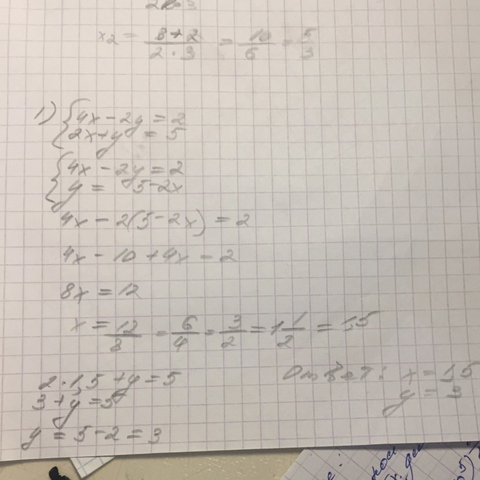 x₂ = (8+2)/(2·3) = 10/6 = 5/3
1) {4x − 2y = 2
{2x + y = 5
{4x − 2y = 2
{y = 5 − 2x
4x − 2(5 − 2x) = 2
4x − 10 + 4x = 2
8x = 12
x = 12/8 = 6/4 = 3/2 = 1 1/2 = 1,5
2·1,5 + y = 5
3 + y = 5
y = 5 − 2 = 3
Ответ: x = 1,5
y = 3